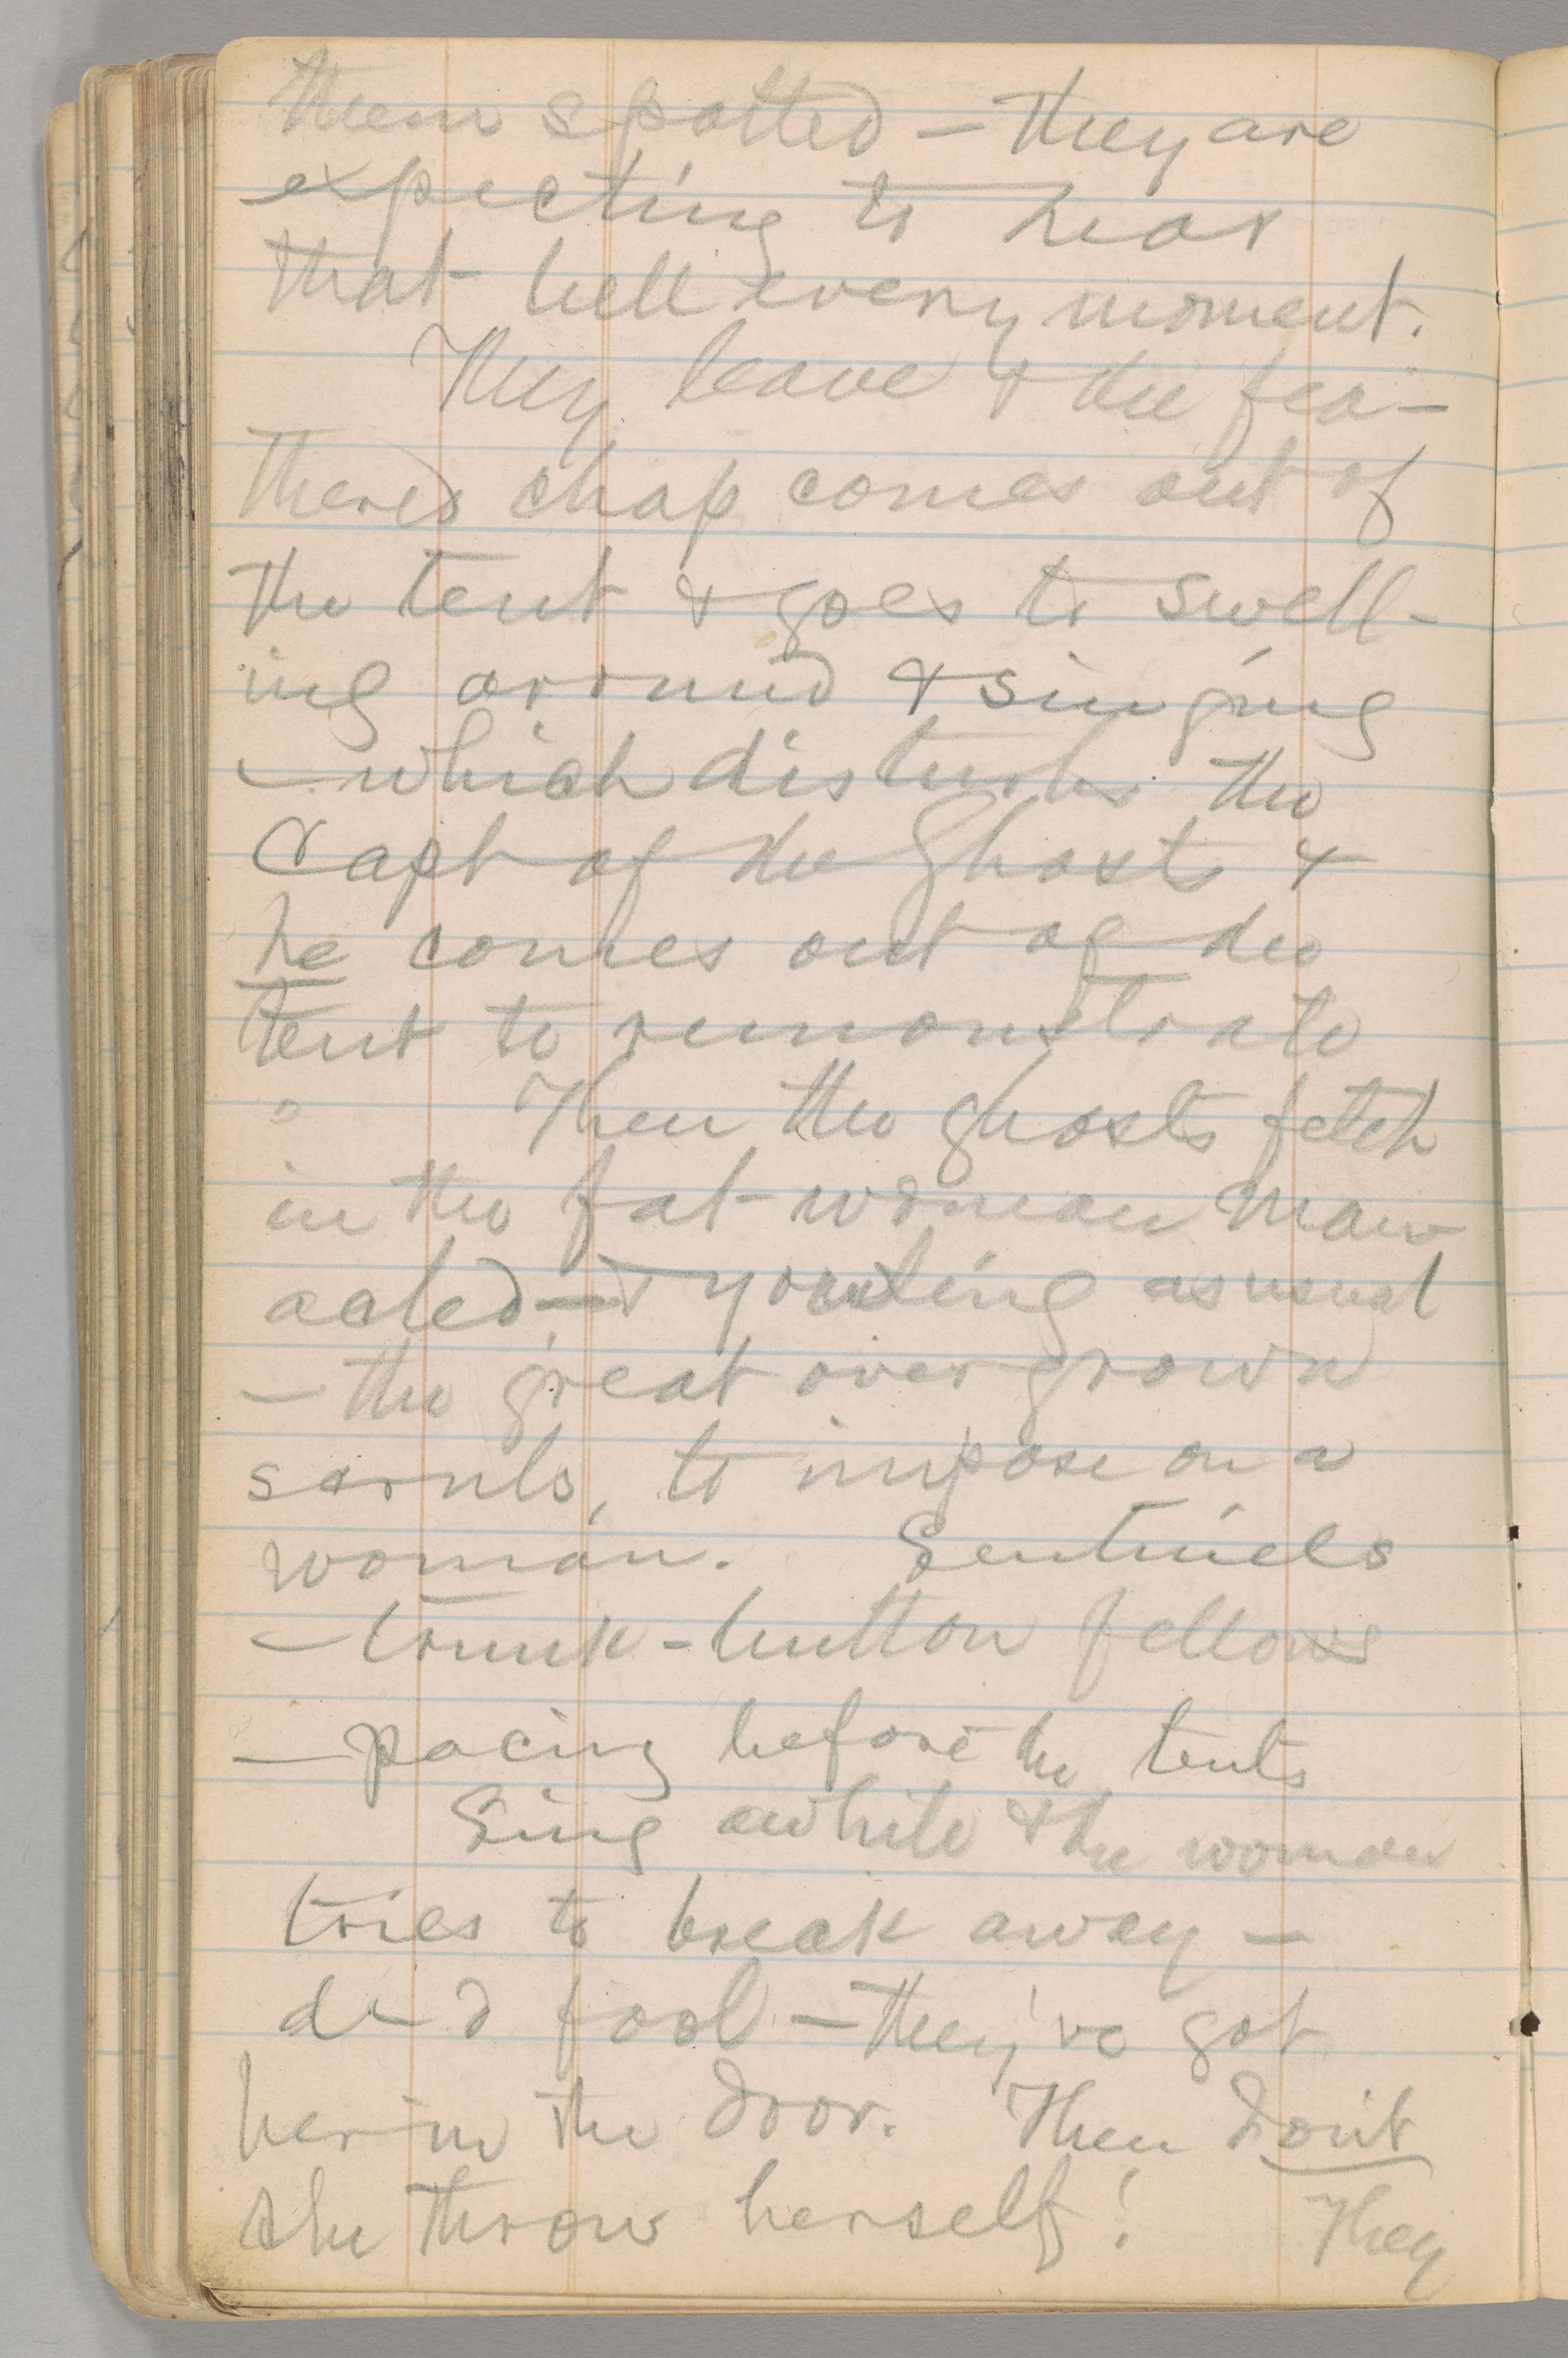 them spotted — they are
expecting to hear
that bell every moment.
They leave & the fea-
thered chap comes out of
the tent & goes to swell-
ing around & singing
— which disturbs the
Capt of the Ghosts &
he comes out of the
tent to remonstrate
Then the ghosts fetch
in the fat woman man
acled — & yowling as usual
— the great overgrown
scrubs, to impose on a
woman. Sentinels
— trunk-button fellows
— pacing before the tents
Sing awhile & the woman
tries to break away —
d—d fool — they've got
her in the door. Then don't
she throw herself! They